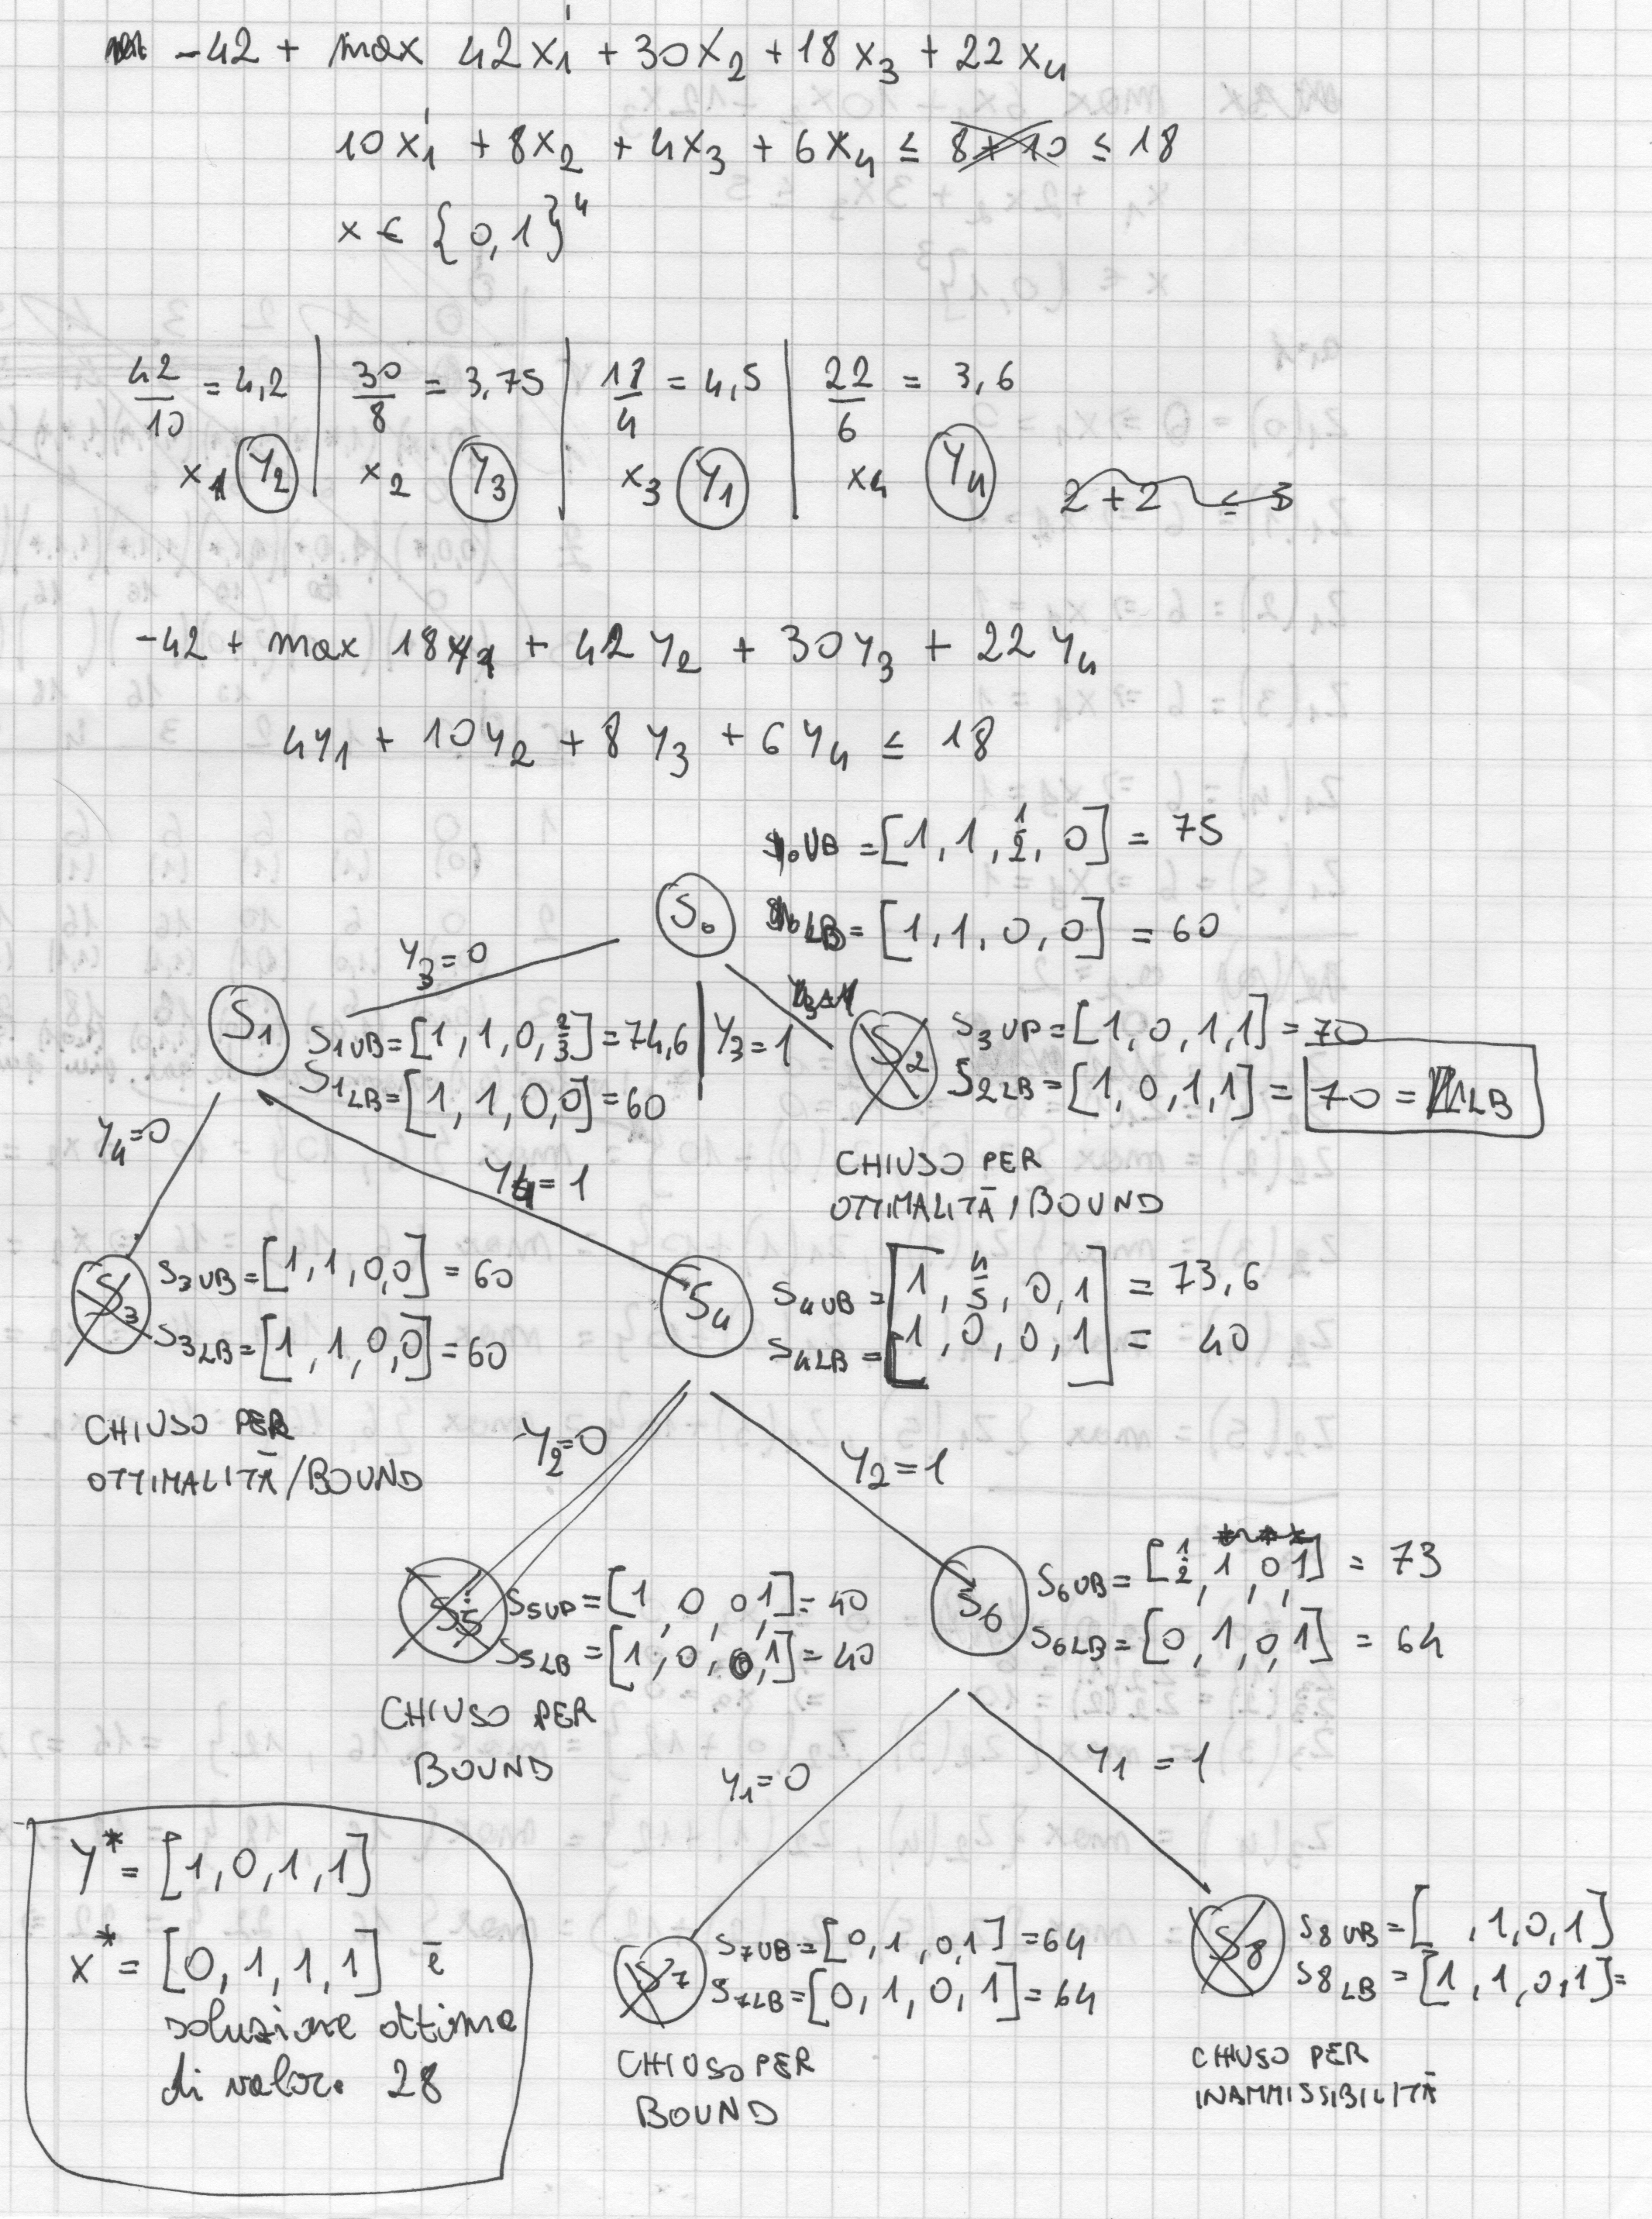 -42 + max 42x₁' + 30x₂ + 18x₃ + 22x₄
10x₁' + 8x₂ + 4x₃ + 6x₄ ≤ 8+10 ≤ 18
x ∈ {0,1}⁴
42/10 = 4,2 | 30/8 = 3,75 | 18/4 = 4,5 | 22/6 = 3,6
x₁ Y₂ | x₂ Y₃ | x₃ Y₁ | x₄ Y₄
2+2 ≤ 3
-42 + max 18y₁ + 42y₂ + 30y₃ + 22y₄
4y₁ + 10y₂ + 8y₃ + 6y₄ ≤ 18
S₀ UB = [1, 1, 1/2, 0] = 75
S₀
LB = [1, 1, 0, 0] = 60
Y₃=0
Y₃=1
S₁
S₁UB = [1, 1, 0, 2/3] = 74,6
S₁LB = [1, 1, 0, 0] = 60
S₂
S₃UP = [1, 0, 1, 1] = 70
S₂LB = [1, 0, 1, 1] = 70 = LB
CHIUSO PER
OTTIMALITÀ / BOUND
Y₄=0
Y₄=1
S₃
S₃UB = [1, 1, 0, 0] = 60
S₃LB = [1, 1, 0, 0] = 60
CHIUSO PER
OTTIMALITÀ / BOUND
S₄
S₄UB = [1, 4/5, 0, 1] = 73,6
S₄LB = [1, 0, 0, 1] = 40
Y₂=0
Y₂=1
S₅
S₅UP = [1, 0, 0, 1] = 40
S₅LB = [1, 0, 0, 1] = 40
CHIUSO PER
BOUND
S₆
S₆UB = [1/2, 1, 0, 1] = 73
S₆LB = [0, 1, 0, 1] = 64
Y₁=0
Y₁ = 1
S₇
S₇UB = [0, 1, 0, 1] = 64
S₇LB = [0, 1, 0, 1] = 64
CHIUSO PER
BOUND
S₈
S₈UB = [ , 1, 0, 1]
S₈LB = [1, 1, 0, 1] =
CHIUSO PER
INAMMISSIBILITÀ
Y* = [1, 0, 1, 1]
x* = [0, 1, 1, 1] è
soluzione ottima
di valore 28